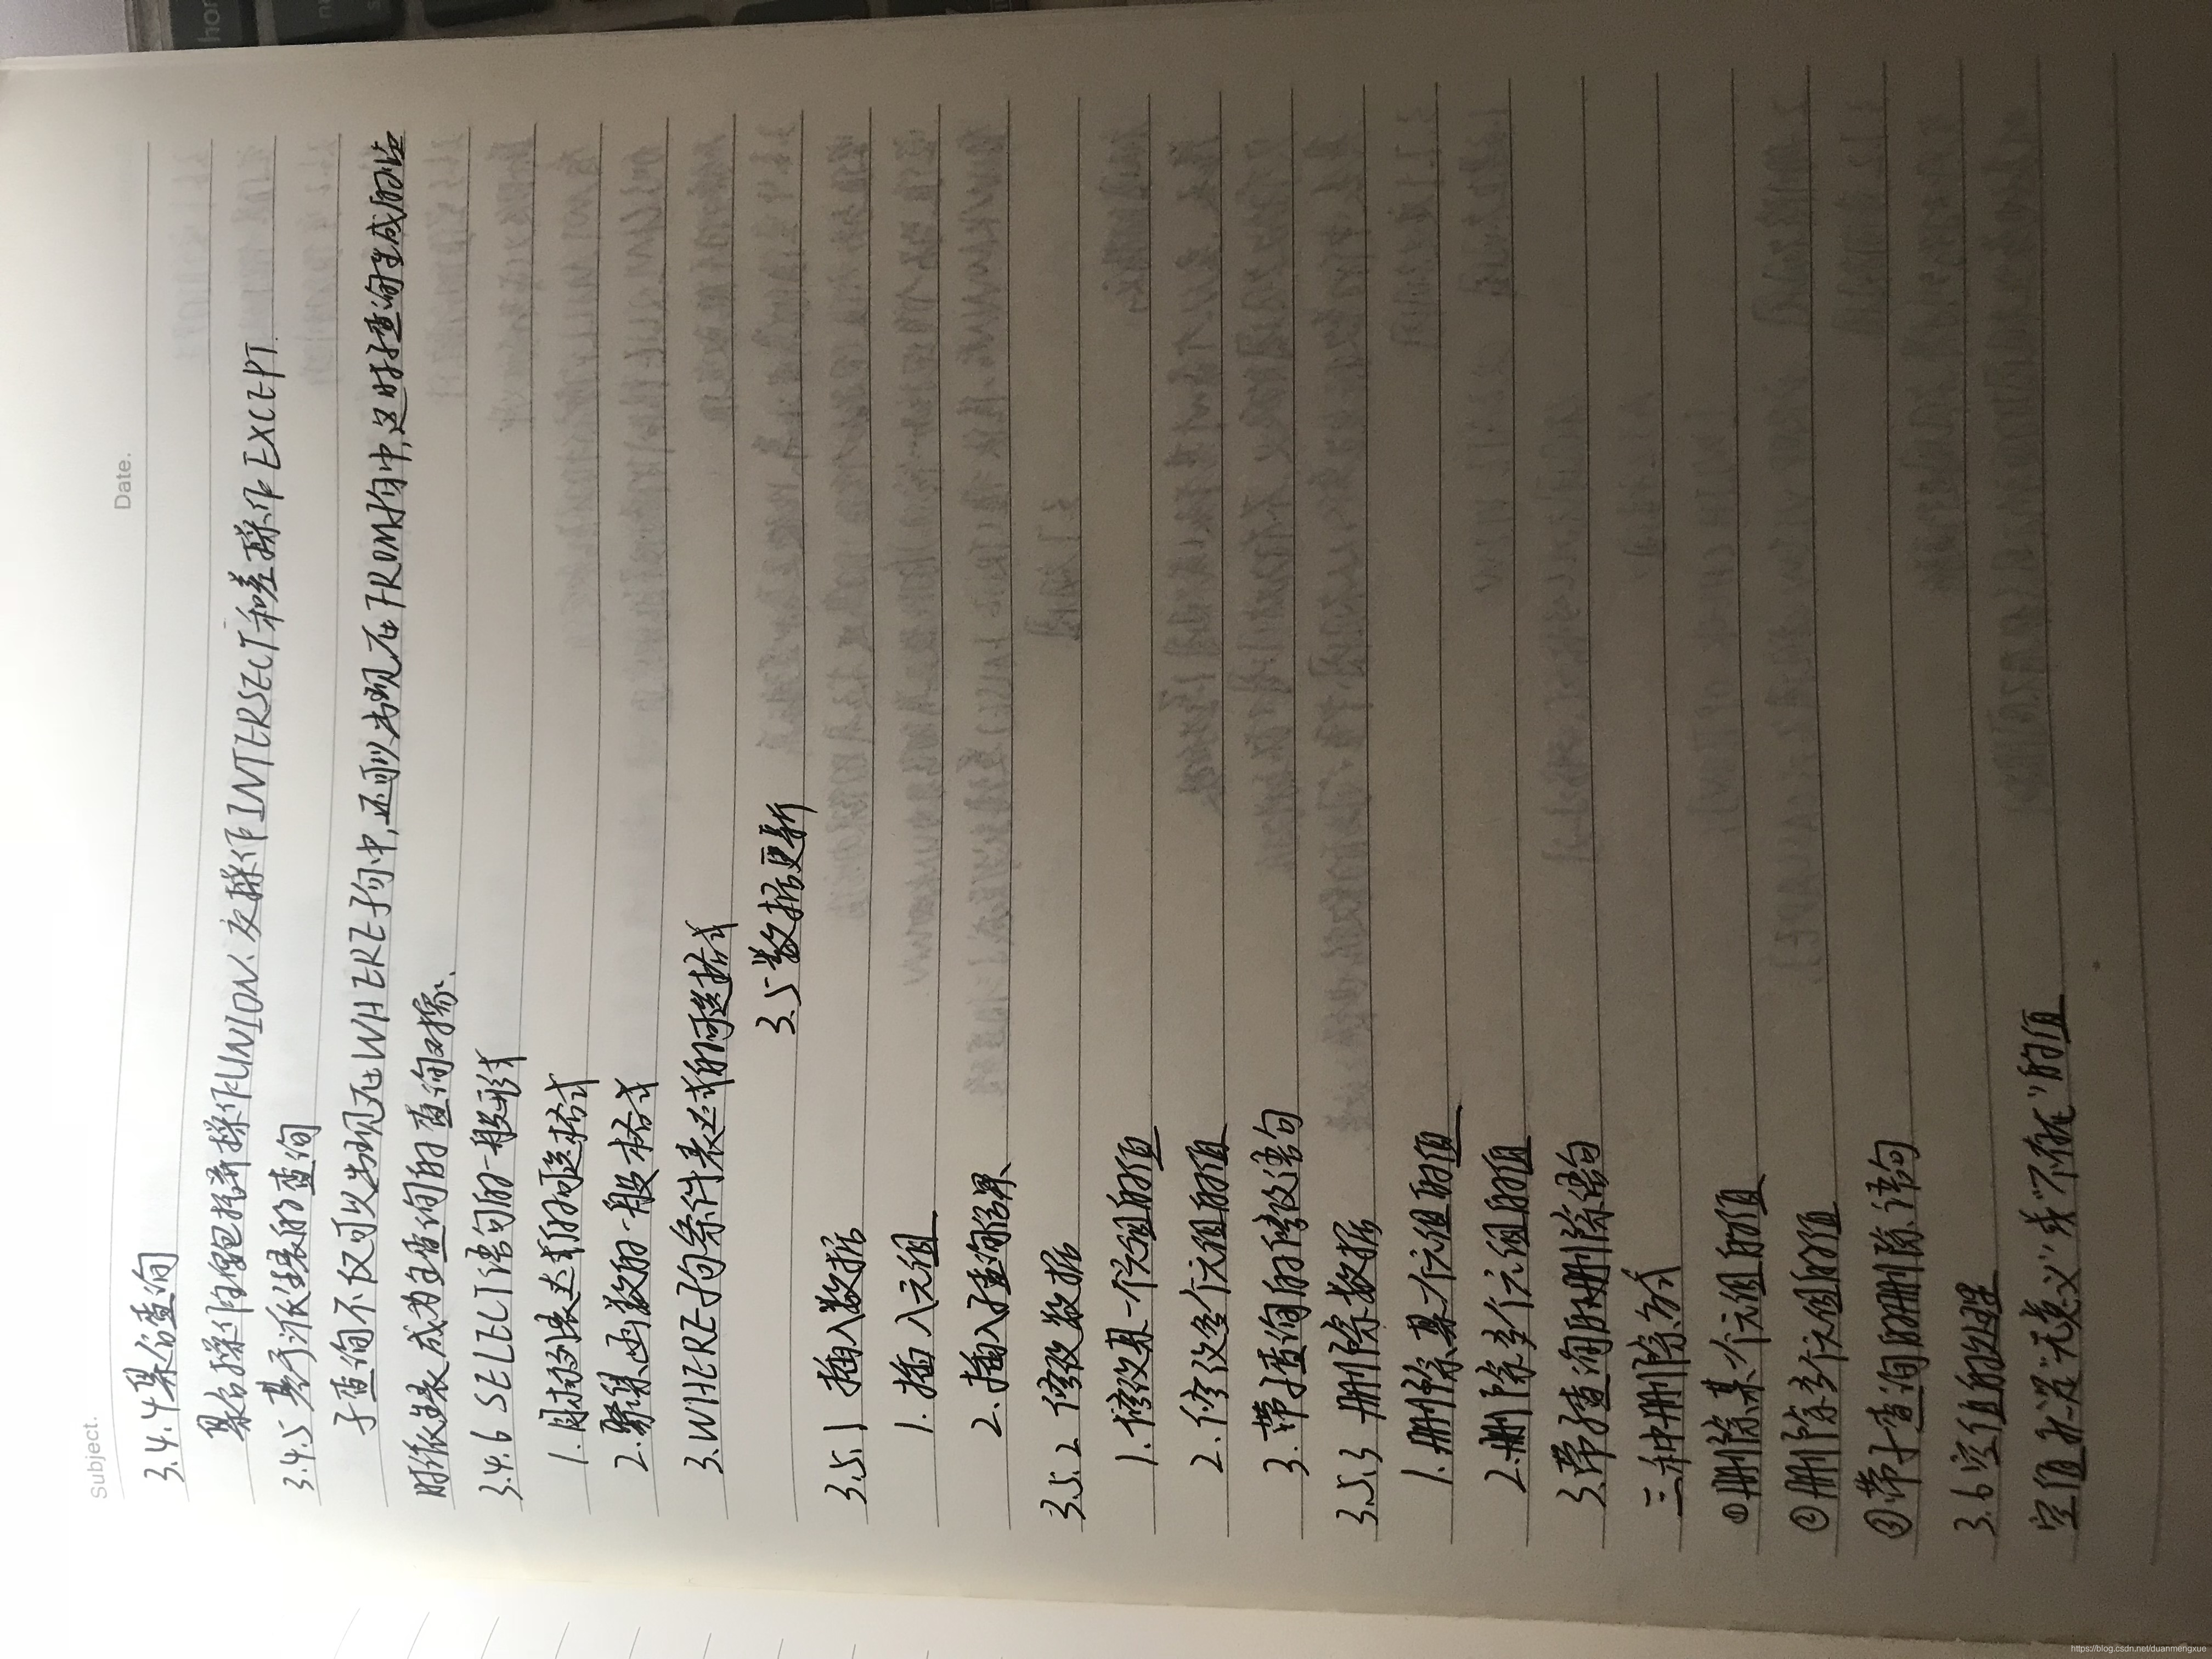 Subject.
Date.
3.4.4 集合查询
集合操作主要包括并操作UNION、交操作INTERSECT和差操作EXCEPT
3.4.5 基于派生表的查询
子查询不仅可以出现在WHERE子句中,还可以出现在FROM子句中,这时子查询生成的临
时派生表成为主查询的查询对象.
3.4.6 SELECT语句的一般形式
1.目标列表达式的可选格式
2.聚集函数的一般格式
3.WHERE子句条件表达式的可选格式
3.5 数据更新
3.5.1 插入数据
1.插入元组
2.插入子查询结果
3.5.2 修改数据
1.修改某一个元组的值
2.修改多个元组的值
3.带子查询的修改语句
3.5.3 删除数据
1.删除某个元组的值
2.删除多个元组的值
3.带子查询的删除语句
三种删除方式
①删除某个元组的值
②删除多个元组的值
③带子查询的删除语句
3.6 空值的处理
空值 "无意义"或"不能"的值
https://blog.csdn.net/duanmengxue